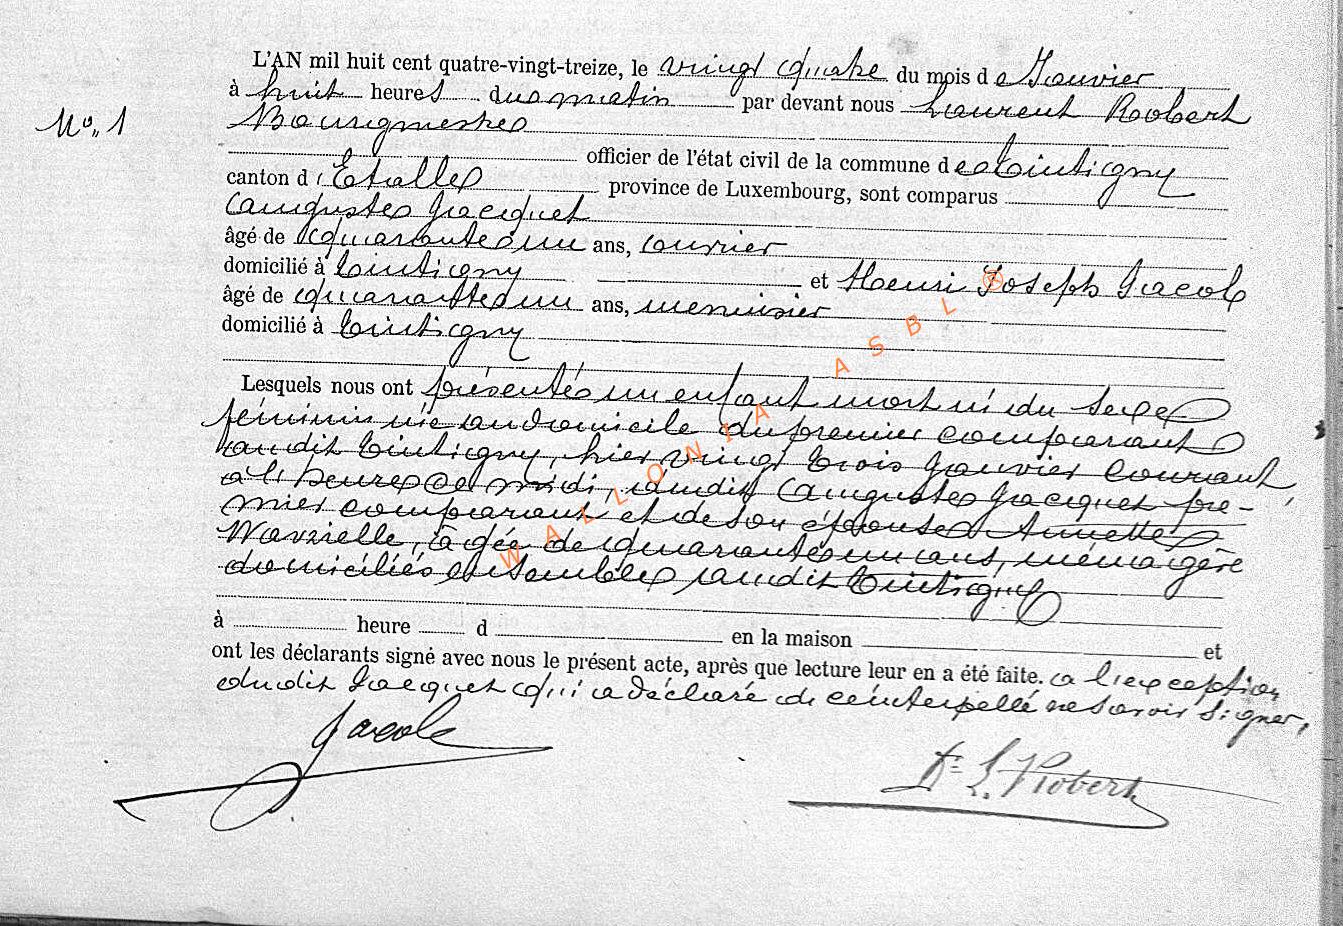 L'AN mil huit cent quatre-vingt-treize, le vingt quatre du mois de Janvier
à huit heures du matin par devant nous Laurent Robert
No. 1
Bourgmestre
officier de l'état civil de la commune de Tintigny
canton d'Etalle province de Luxembourg, sont comparus
Auguste Jacquet
âgé de quarante un ans, ouvrier
domicilié à Tintigny et Henri Joseph Jacob
âgé de quarante un ans, menuisier
domicilié à Tintigny
Lesquels nous ont présenté un enfant mort né du sexe
féminin née au domicile du premier comparant
au dit Tintigny, hier vingt trois Janvier courant,
à heures de midi, dudit Auguste Jacquet pre-
mier comparant et de son épouse Annette
âgée de quarante un ans, ménagère
domiciliés ensemble audit Tintigny
à heure d en la maison et
ont les déclarants signé avec nous le présent acte, après que lecture leur en a été faite. a l'exception
du dit Jacquet qui a déclaré de ce interpellé ne savoir signer,
Jacob
L. Robert
WALLONIA ASBL ®